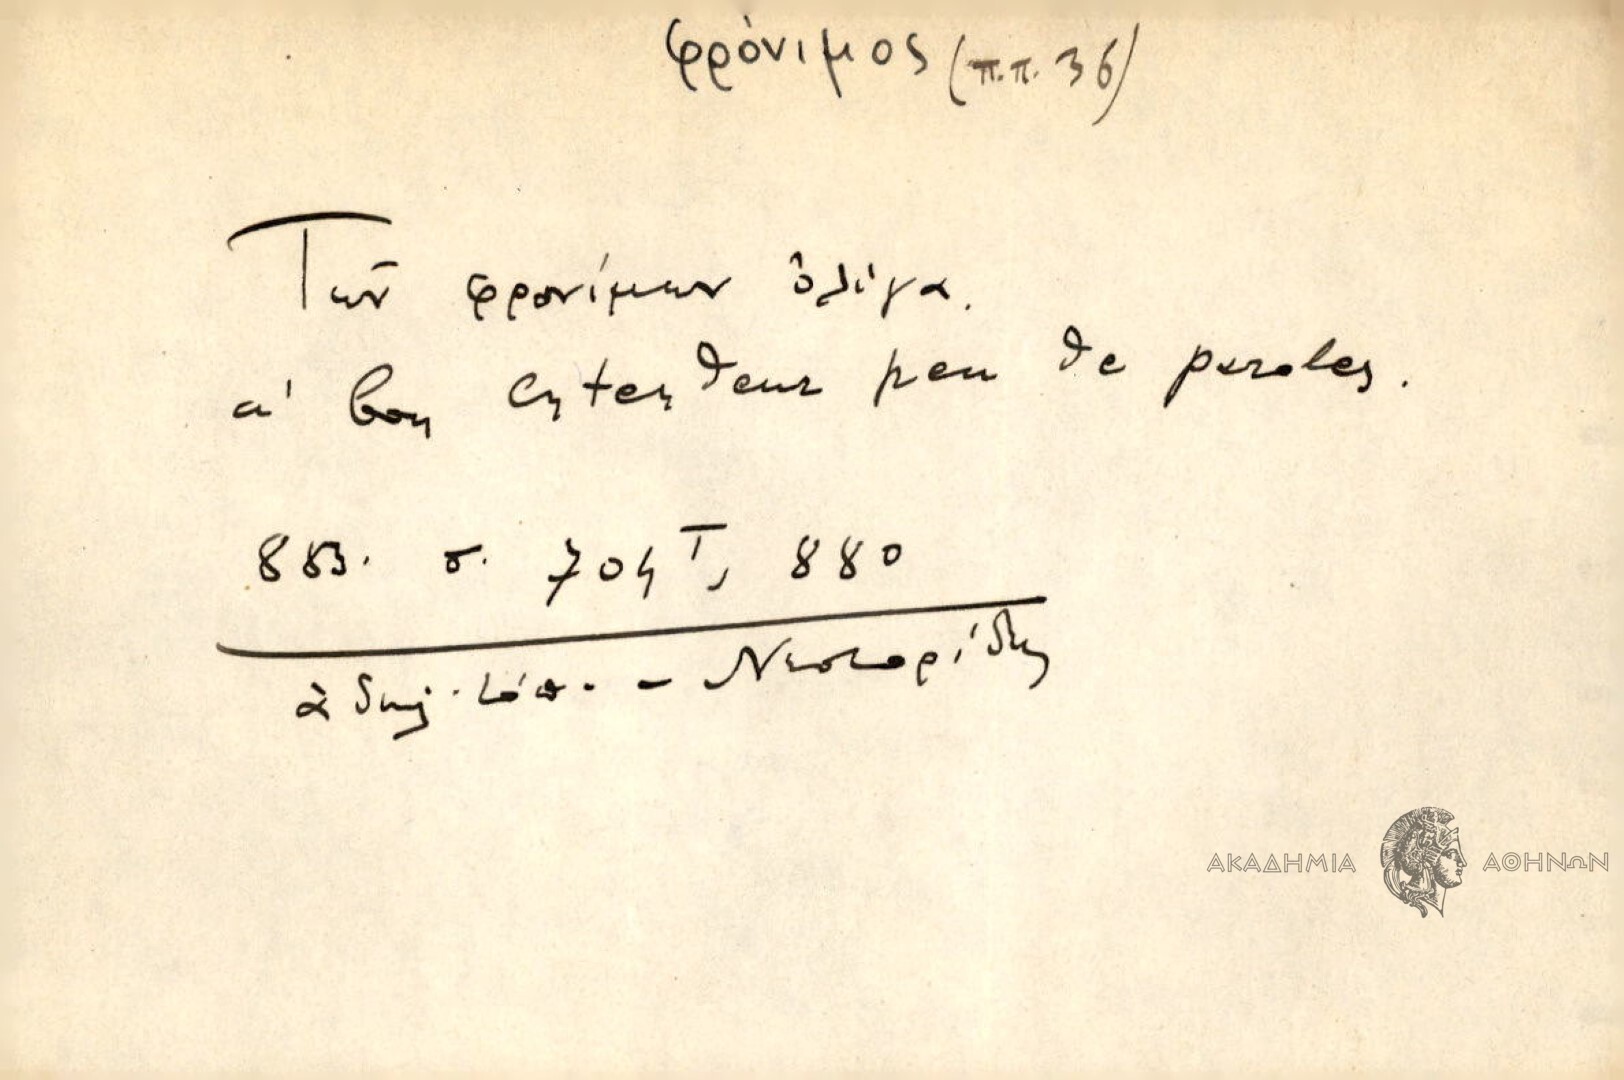 φρόνιμος (π.π. 36)
Των φρονίμων ὀλίγα.
à bon entendeur peu de paroles.
883. σ. 704 Τ, 880
ἀδήλ. τόπ. - Νεστορίδης
ΑΚΑΔΗΜΙΑ ΑΘΗΝΩΝ